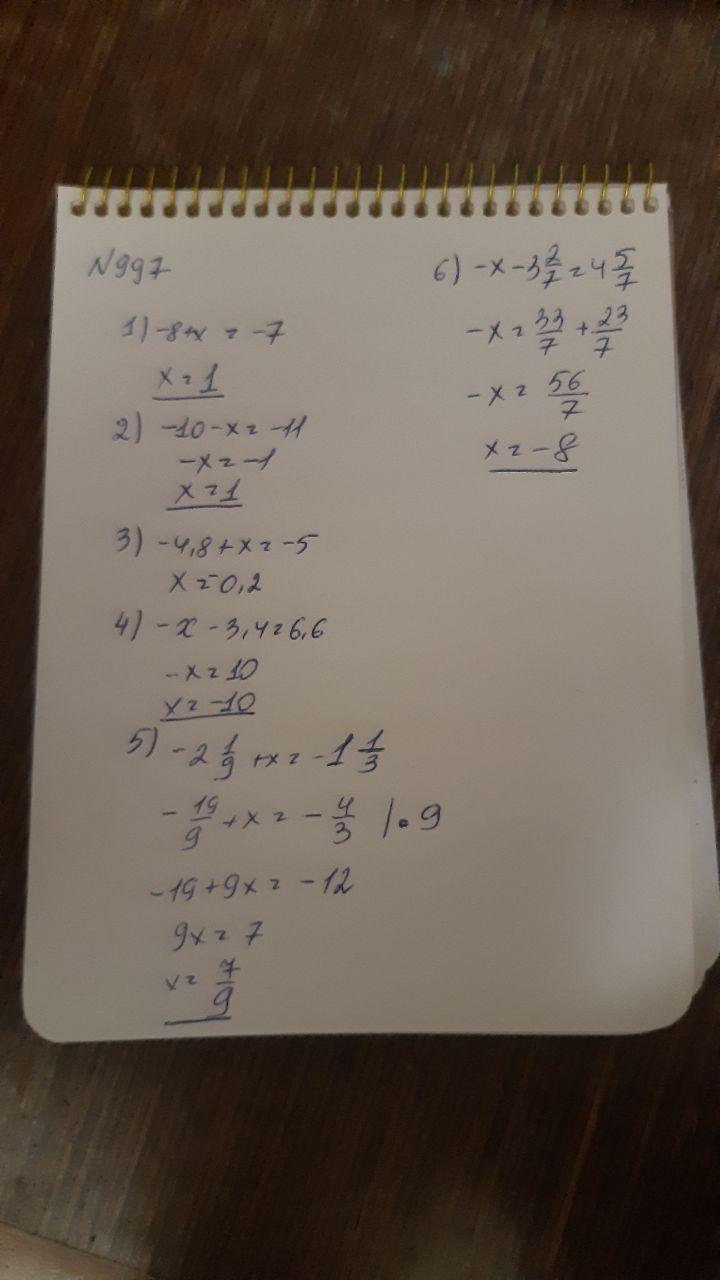 N997
1) -8+x = -7
x = 1
2) -10-x = -11
-x = -1
x = 1
3) -4,8+x = -5
x = -0,2
4) -x - 3,4 = 6,6
-x = 10
x = -10
5) -2 1/9 + x = -1 1/3
-19/9 + x = -4/3 | • 9
-19+9x = -12
9x = 7
x = 7/9
6) -x - 3 2/7 = 4 5/7
-x = 33/7 + 23/7
-x = 56/7
x = -8